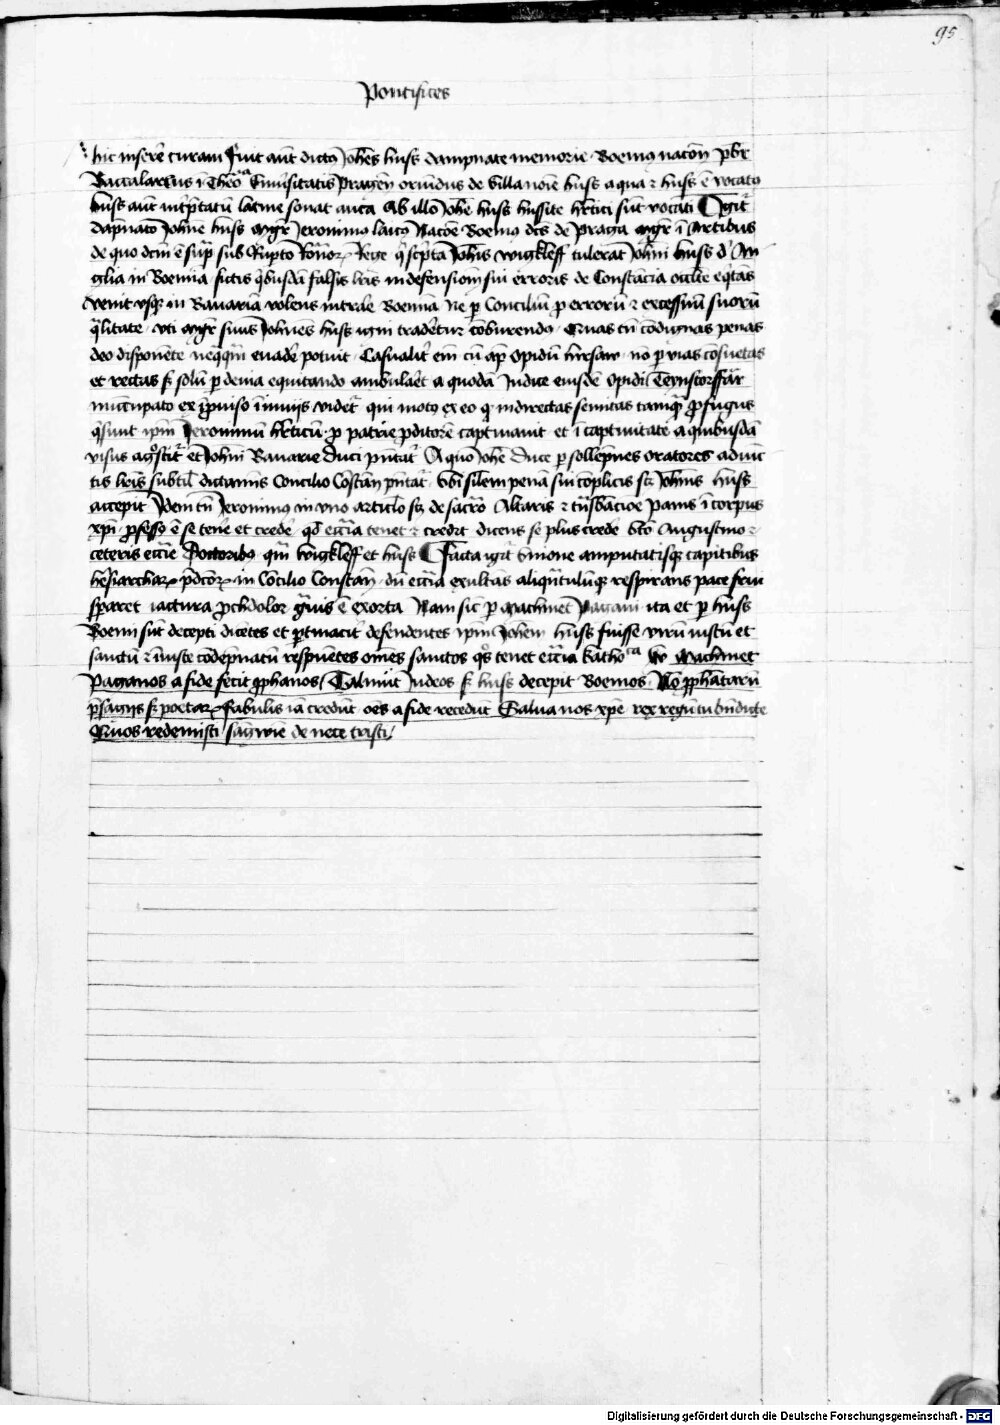 95
Pontifices
hic inserẽ curam Fuit aũt dictꝰ Johẽs huss dampnate memorie Boemꝰ nacõn pbr
Baccalareus ĩ Theoca Vniũsitatis Pragen̄ oriũdus de villa noĩe huss a qua ⁊ huss ẽ vocatꝰ
huss aũt int̾p̃tatũ latine sonat auca Ab illo Johẽ huss hussite hr̃tici sũt vocati Egit̾
dãpnato Johñe huss mgr̃ Jeronimꝰ laicꝰ Nacõe Boemꝰ dc̃s de Praga mgr̃ ĩ Artibus
de quo dc̃m ẽ sup̃ sub Rup̱to Romor̃ Rege q̃ sc̃pta Johĩs wigkleff tulerat Johĩni huss d̾ An
glia in Boemia fictis qͥbusdã falsis lr̃is in defensionem sui erroris de Constãcia occulte eqͥtãs
venit vsqꝫ in Bauariã volens intrare Boemiã Ne p̱ Conciliũ p̱ errorũ ⁊ excessiuũ suorũ
q̃litate vti mgr̃ suus Johñes huss igni trader̃tur cõburendꝰ Quas tñ cõdignas penas
deo disponẽte neq̃q̃m euader̃ potuit Casualit̾ em̃ cũ ap̃ opidũ hirsaw nõ p̱ vias cõsuetas
et rectas sꝫ solũ p̱ deuia equitando ambular̃t a quodã Judice eiusdẽ opidi Teynstorffar̃
nũcupato ex ĩprouiso ĩ inuijs videt̾ qui motꝰ ex eo qꝫ indirectas semitas tamq̃ ꝓfugus
q̃siuit ip̃m Jeronimũ hr̃ticũ p̱ patrie ꝓditorẽ captiuauit et ĩ captiuitate a quibusdã
visus agͦscit̾ et Johĩni Bauarie Duci p̃ntat̾ A quo Johẽ Duce p̱ sollepnes oratores adiũc
tis lr̃is subtil̾ dictaminis Concilio Cõstan̄ p̃ntat̾ vbi sil̾em penã sui cõplicis scꝫ Johñis huss
accepit Idem tñ Jeronimꝰ in vno articulo scꝫ de sacr̃o Altaris ⁊ tñsb̃acioe Panis ĩ corpus
xp̃i ꝓfessꝰ ẽ se tener̃ et creder̃ qͦd ecc̃ia tenet ⁊ credit dicens se plus creder̃ bt̃o Augustino ⁊
ceteris ecc̃ie Doctoribꝰ qm̃ wigkleff et huss Facta igit̾ vnione amputatisqꝫ capitibus
heresiarcharꝫ p̃dc̃orꝫ in Cõcilio Constan̄ dũ ecc̃ia exultãs aliq̃ntulũqꝫ respirans pace frui
sp̱aret iactura ꝓch dolor gr̃uis ẽ exorta Nam sic̃ p̱ machmet Pagani ita et p̱ huss
Boemi sũt decepti dicẽtes et p̱tinacit̾ defendentes ip̃m Johẽm huss fuisse virũ iustũ et
sanctũ ⁊ iniuste cõdẽpnatũ respuẽtes om̃es sanctos qͦs tenet ecc̃ia katho ca machmet
Paganos a fide fecit orphanos Talmut Judeos sꝫ huss decepit Boemos No ꝓphãtarũ
p̃sagijs sꝫ poetarꝫ fabulis iã credũt oẽs a fide recedũt Salua nos xp̃e rex regũ tu bñdicte
Quos redemisti sãgwĩe de nece tristi
Digitalisierung gefördert durch die Deutsche Forschungsgemeinschaft - DFG